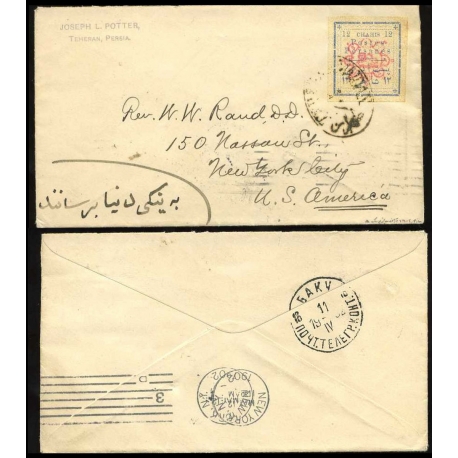 JOSEPH L. POTTER,
TEHERAN, PERSIA.
12 CHAHIS 12
Rev. W. W. Rand D.D.
150 Nassau St.,
New York City
U. S. America
به ینگی دنیا برسانند
БАКУ
11
IV
ПОЧТ. ТЕЛЕГР. КОНТ.
NEW YORK, N.Y.
1902
D
3